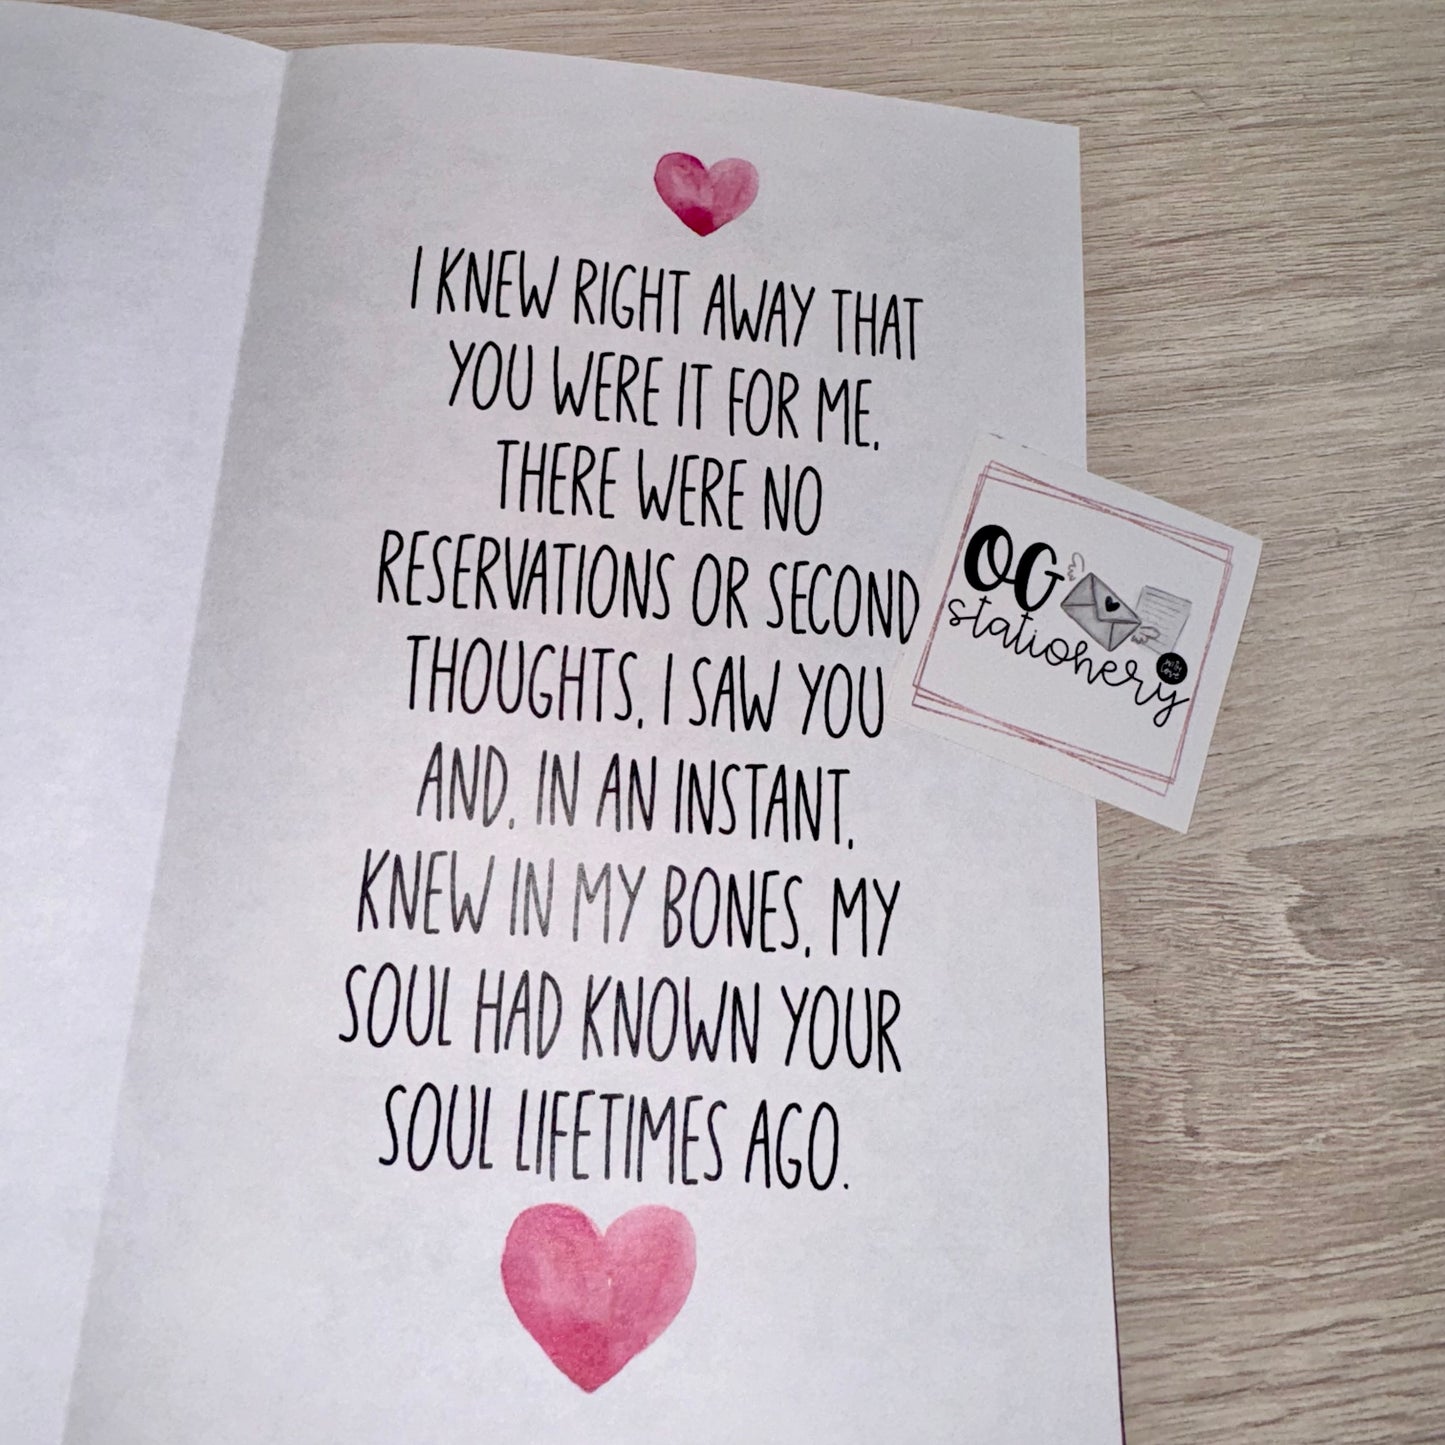 I KNEW RIGHT AWAY THAT
YOU WERE IT FOR ME.
THERE WERE NO
RESERVATIONS OR SECOND
THOUGHTS, I SAW YOU
AND, IN AN INSTANT,
KNEW IN MY BONES, MY
SOUL HAD KNOWN YOUR
SOUL LIFETIMES AGO.
OG
stationery
with
love